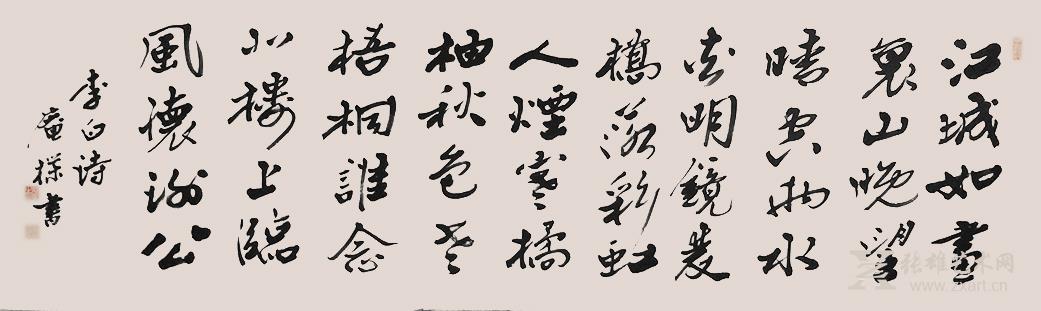 江城如畫
裏山晚望
晴空兩水
夾明鏡雙
橋落彩虹
人煙寒橘
柚秋色老
梧桐誰念
北樓上臨
風懷謝公
李白詩
書
张雄艺术网
www.zxart.cn